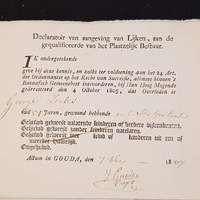 Declaratoir van aangeving van Lijken, aan de
gequalificeerde van het Plaatzelyk Bestuur.
IK ondergetekende
geve bij deze kennis, en zulks ter voldoening aan het 24 Art.
der Ordonnantie op het Recht van Successie, alömme binnen 't
Bataafsch Gemeenebest in te vorderen, bij Hun Hoog Mogende
gearresteerd den 4 October 1805, dat Overleden is
George
oud 51 Jaren, gewoond hebbende
Gehuwd geweest nalatende kinderen of verdere descendenten.
Gehuwd geweest zonder kinderen natelaten.
Gehuwd geweest met kind of kinderen uit een
Ongehuwd.
Aldus in GOUDA, den 7 1807